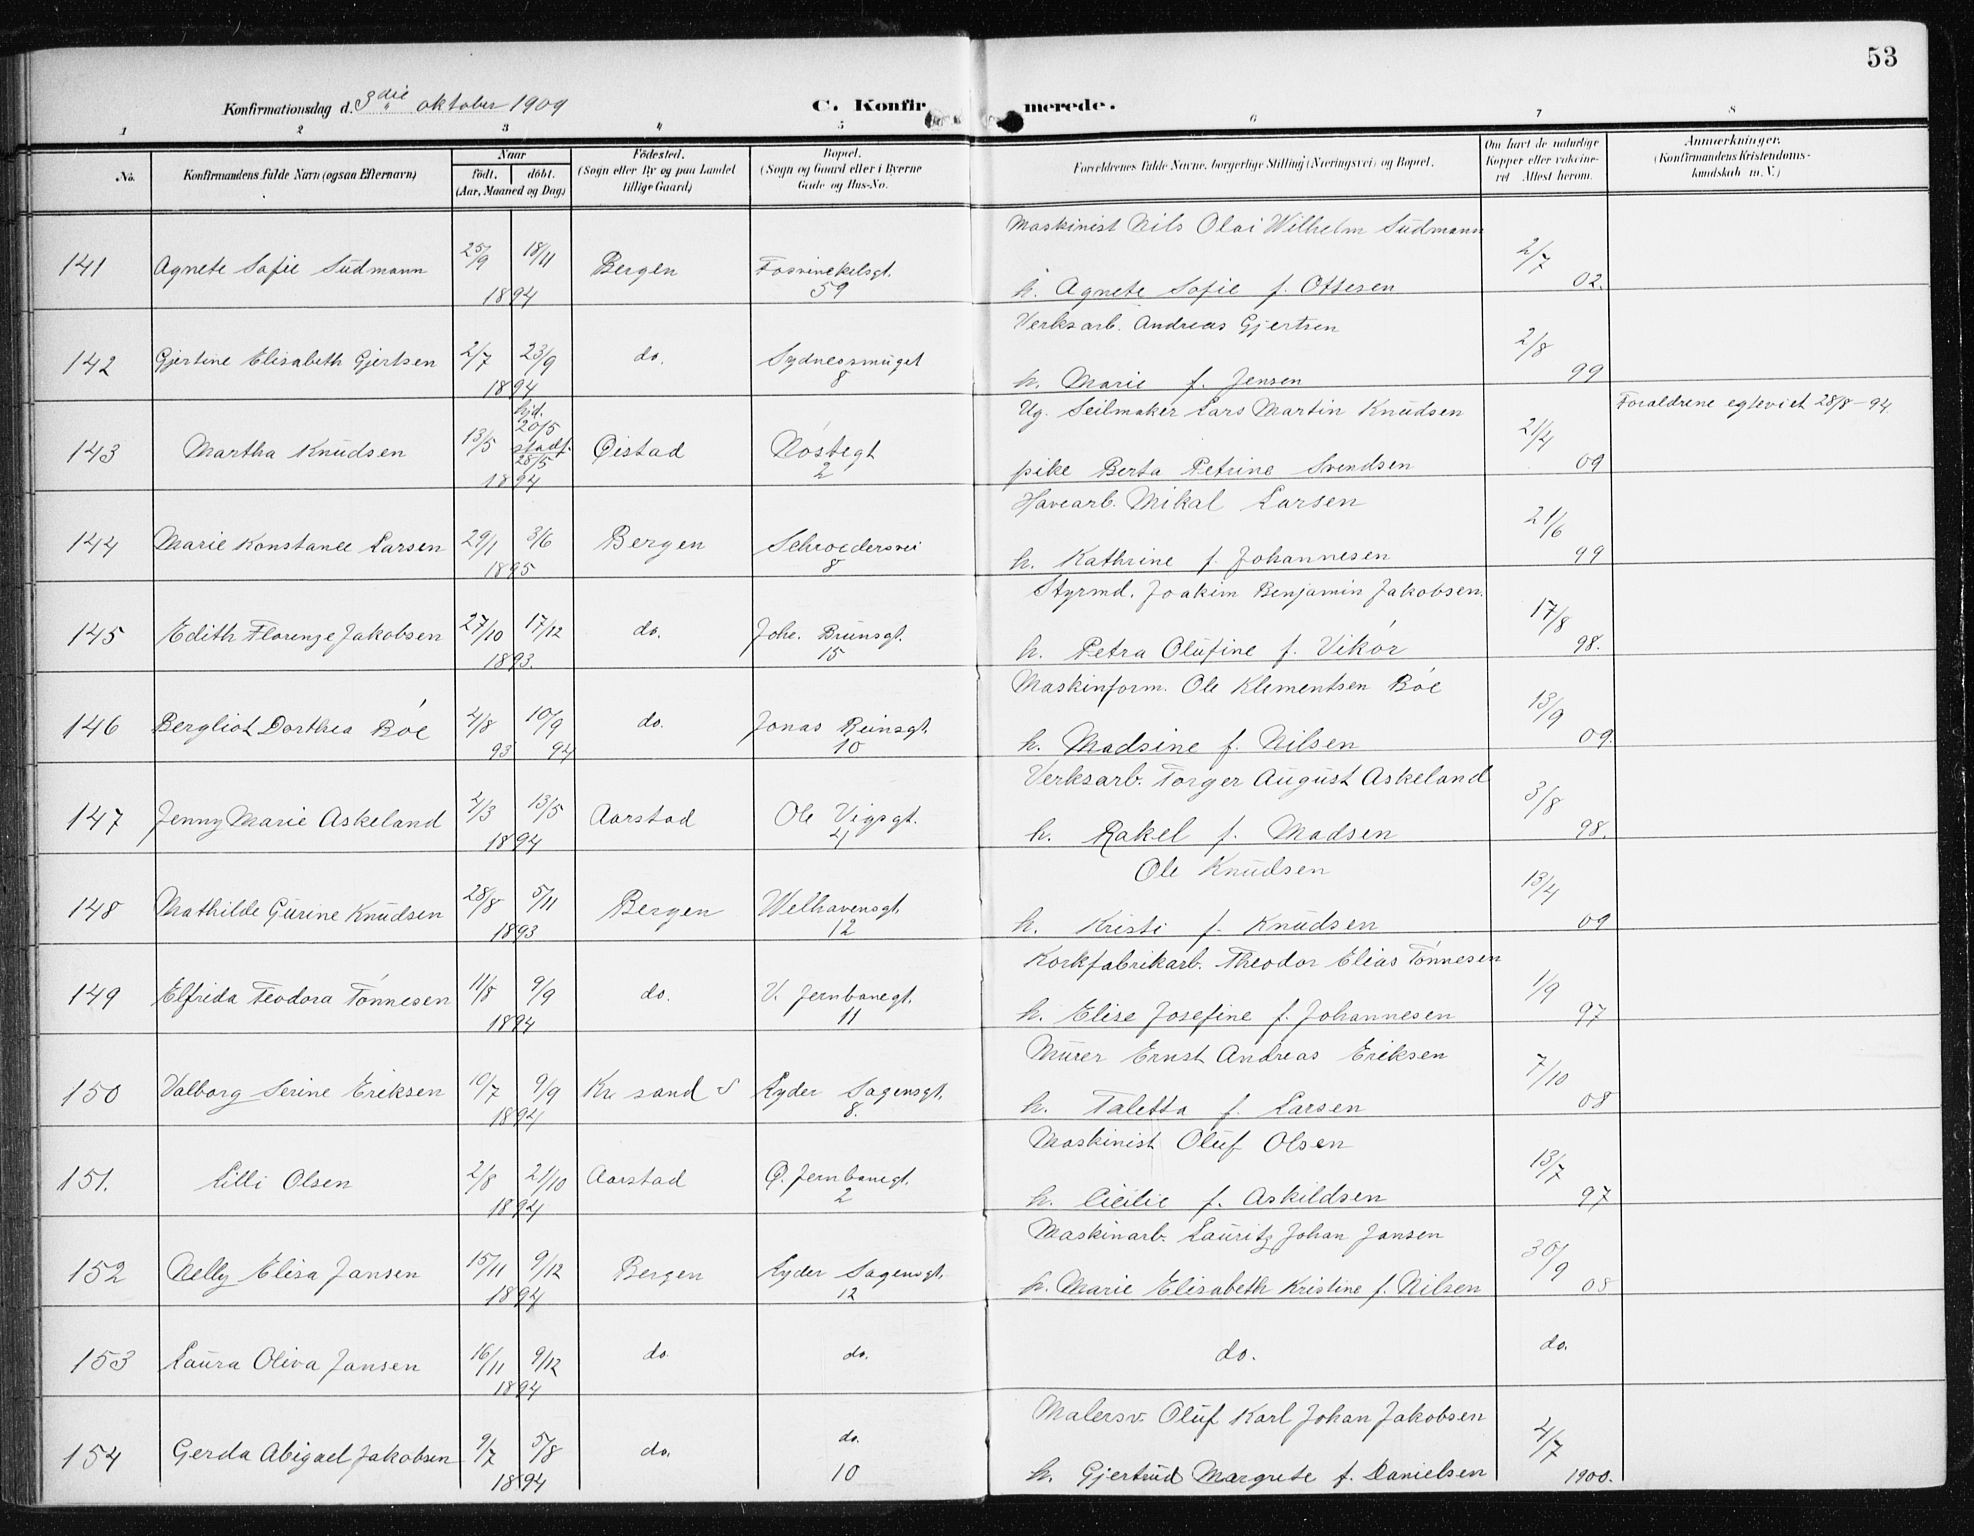 53
Konfirmationsdag d. 3die oktober 1909 C. Konfirmerede.
1 2 3 4 5 6 7 8
No. Konfirmandens fulde Navn (ogsaa Efternavn) Naar födt. döbt. (Aar, Maaned og Dag) Födested. (Sogn eller By og paa Landet tillige Gaard) Bopæl. (Sogn og Gaard eller i Byerne Gade og Hus-No. Forældrenes fulde Navne, borgerlige Stilling (Næringsvei) og Bopæl. Om havt de naturlige Kopper eller vakcineret Attest herom. Anmærkninger. (Konfirmandens Kristendomskundskab m. V.)
Maskinist Nils Olai Wilhelm Sudmann
141 Agnete Sofie Sudmann 25/9 18/11 Bergen 2/7
1894 59 h. Agnete Sofie f. Ottesen 02.
Verksarb. Andreas Gjertsen
142 Gjertine Elisabeth Gjertsen 2/7 23/9 do. Sydnessmuget 2/8
1894 8 h. Marie f. Jensen 99
Ug. Seilmaker Lars Martin Knudsen Foraldrene egteviet 28/8-94
143 Martha Knudsen 13/5 hjd. 20/5 stadf. 28/5 Øistad Nøstegt 21/4
1894 2 pike Berta Petrine Svendsen 09
Havearb. Mikal Larsen
144 Marie Konstance Larsen 29/1 3/6 Bergen Schroedersvei 21/6
1895 8 h. Kathrine f. Johannesen 99
Styrmd. Joakim Benjamin Jakobsen.
145 Edith Florenze Jakobsen 27/10 17/12 do. Johe. Brunsgt. 17/8
1893. 15 h. Petra Olufine f. Vikór 98.
Maskinform. Ole Klementsen Bóe
146 Bergliot Dorthea Bóe 4/8 10/9 do. Jonas Reinsgt. 13/9
93 94 10 h. Madsine f. Nilsen 09.
Verksarb. Torger August Askeland
147 Jenny Marie Askeland 4/3 13/5 Aarstad Ole Vigsgt. 3/8
1894 4 h. Rakel f. Madsen 98.
Ole Knudsen
148 Mathilde Gurine Knudsen 28/8 5/11 Bergen Welhavensgt. 13/4
1893 12 h. Kristi f. Knudsen 09
Korkfabrikarb. Theodor Elias Tónnesen
149 Elfrida Teodora Tónnesen 11/8 9/9 do. V. Jernbanegt. 1/9
1894 11 h. Elise Josefine f. Johannesen 97
Murer Ernst Andreas Eriksen
150 Valborg Serine Eriksen 10/7 9/9 Kr. sand S Lyder Sagensgt. 7/10
1894 8. h. Taletta f. Larsen 08
Maskinist Oluf Olsen
151. Lilli Olsen 2/8 21/10 Aarstad Ø. Jernbanegt. 13/7
1894 2 h. Cicilie f. Askildsen 97
Maskinarb. Lauritz Johan Jansen
152 Nelly Elisa Jansen 15/11 9/12 Bergen Lyder Sagensgt. 30/9
1894 12 h. Marie Elisabeth Kristine f. Nilsen 08
153 Laura Oliva Jansen 16/11 9/12 do. do. do. do.
1894
Malersv. Oluf Karl Johan Jakobsen
154 Gerda Abigael Jakobsen 9/7 5/8 do. do. 4/7
1894 10 h. Gjertrud Margrete f. Danielsen 1900.